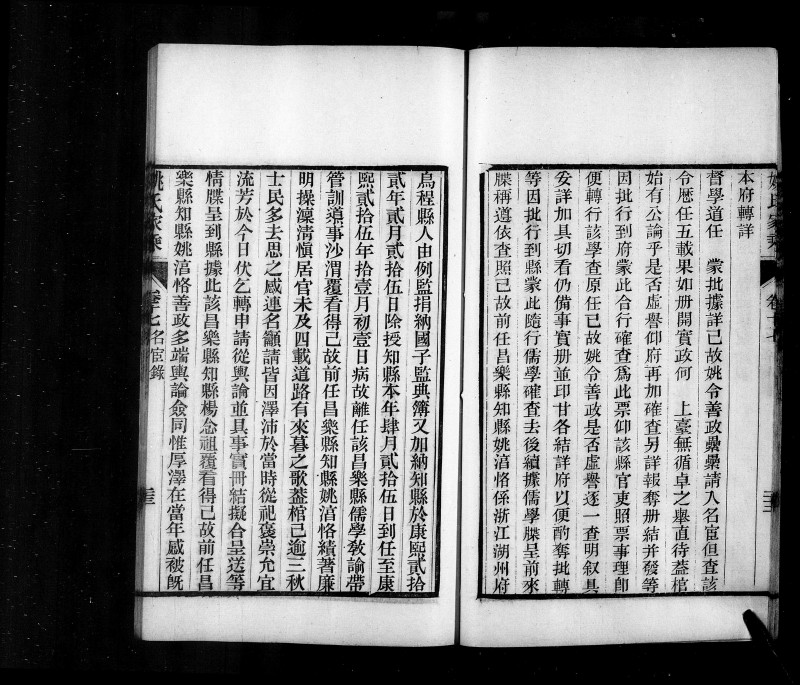 姚氏家乘
卷十七
本府轉詳
督學道任 蒙批據詳已故姚令善政纍纍請入名宦但查該
令歷任五載果如册開實政何 上臺無循卓之舉直待蓋棺
始有公論乎是否虛譽仰府再加確查另詳報奪册結并發等
因批行到府蒙此合行確查爲此票仰該縣官吏照票事理卽
便轉行該學查原任已故姚令善政是否虛譽逐一查明叙具
妥詳加具切看仍備事實册並印甘各結詳府以便酌奪批轉
等因批行到縣蒙此隨行儒學確查去後續據儒學牒呈前來
牒稱遵依查照已故前任昌樂縣知縣姚湻恪係浙江湖州府
烏程縣人由例監捐納國子監典簿又加納知縣於康熙貳拾
貳年貳月貳拾伍日除授知縣本年肆月貳拾伍日到任至康
熙貳拾伍年拾壹月初壹日病故離任該昌樂縣儒學敎諭帶
管訓導事沙渭覆看得已故前任昌樂縣知縣姚湻恪績著廉
明操凜淸愼居官未及四載道路有來暮之歌蓋棺已逾三秋
士民多去思之感連名籲請皆因澤沛於當時從祀褒崇允宜
流芳於今日伏乞轉申請從輿論並具事實冊結擬合呈送等
情牒呈到縣據此該昌樂縣知縣楊念祖覆看得已故前任昌
樂縣知縣姚湻恪善政多端輿論僉同惟厚澤在當年感被旣
姚氏家乘
卷十七名宦錄